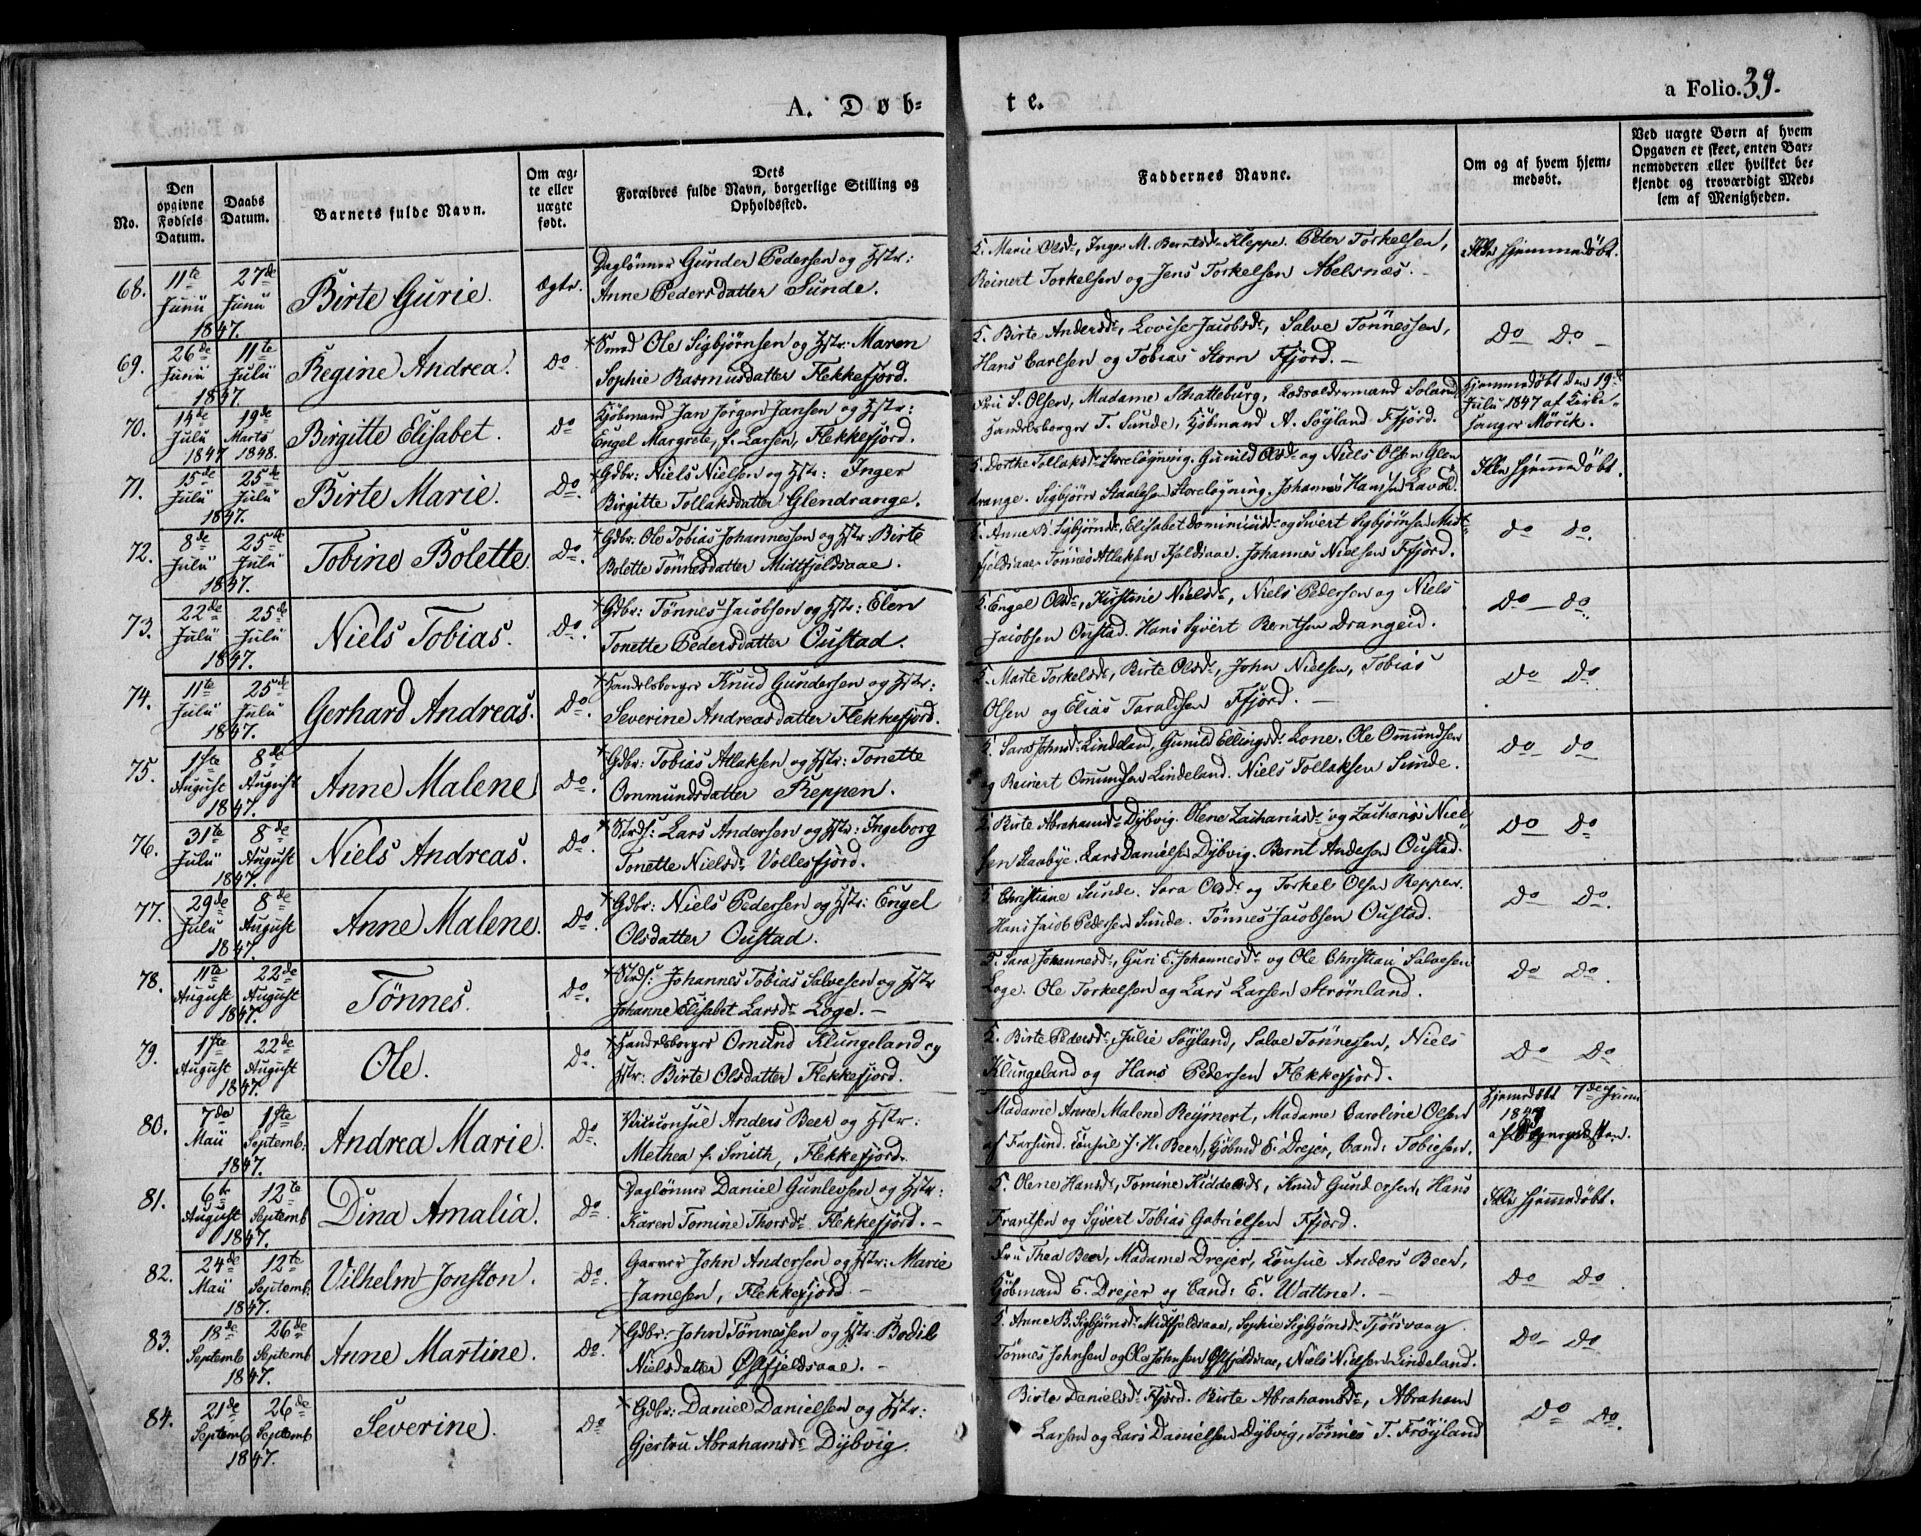 A. Døb-
te.
a Folio. 39.
No.
Den opgivne Fødsels Datum.
Daabs Datum.
Barnets fulde Navn.
Om ægte eller uægte født.
Dets Forældres fulde Navn, borgerlige Stilling og Opholdssted.
Faddernes Navne.
Om og af hvem hjemmedøbt.
Ved uægte Børn af hvem Opgaven er skeet, enten Barnemoderen eller hvilket bekjendt og troværdigt Medlem af Menigheden.
68. 11te Junii 27de Junii 1847. Birte Gurie. Ægte. Daglønner Gunder Pedersen og Hstr:
Anne Pedersdatter Sunde.
5. Marie Olsdr, Inger M. Berntsdr Kleppe. Peder Torkelsen,
Reinert Torkelsen og Jens Torkelsen Abelsnæs.
Ikke hjemmedøbt.
69. 26de Junii 11te Julii 1847. Regine Andrea. Do. Smed Ole Sigbjørnsen og Hstr: Maren
Sophie Rasmusdatter Flekkefjord.
5. Birte Andersdr, Lovise Jacobsdr, Salve Tønnessen,
Hans Carlsen og Tobias Storm Ffjord. –
Do Do –
70. 14de Julii 1847 19de Marts 1848. Birgitte Elisabet. Do Kjøbmand Jan Jørgen Jansen og Hstr:
Engel Margrete, f. Larsen, Flekkefjord.
Fru S. Olsen, Madame Schatteburg, Soland,
Handelsborger T. Sunde, Kjøbmand A. Søyland Ffjord.
Hjemmedøbt den 19de
Julii 1847 af Kirke-
sanger Mörik.
71. 15de Julii 25de Julii 1847. Birte Marie. Do. Gdbr: Niels Nielsen og Hstr: Inger
Birgitte Tollaksdatter Glendrange.
5. Dorthe Tollaksdr Storeløgning. Gunild Olsdr og Niels Olsen Glen
drange. Sigbjørn Staalesen Storeløgning. Johannes Hanssen Lavold.
Ikke hjemmedøbt.
72. 8de Julii 25de Julii 1847. Tobine Bolette. Do. Gdbr: Ole Tobias Johannessen og Hstr: Birte
Bolette Tønnesdatter Midtfjeldsaae.
5. Anne B. Sigbjørnsdr, Elisabet Dominicusdr og Sivert Sigbjørnsen Midt-
fjeldsaae. Tønnes Atlaksen Fjeldsaae. Johannes Nielsen Ffjord.
Do Do.
73. 22de Julii 25de Julii 1847. Niels Tobias. Do. Gdbr: Tønnes Jacobsen og Hstr: Elen
Tonette Pedersdatter Oustad.
5. Engel Olsdr, Kirstine Nielsdr, Niels Pedersen og Niels
Jacobsen Oustad. Hans Syvert Berntsen Drangeid.
Do – Do.
74. 11te Julii 25de Julii 1847. Gerhard Andreas. Do. Handelsborger Knud Gundersen og Hstr:
Severine Andreasdatter Flekkefjord.
5. Marte Torkelsdr, Birte Olsdr, John Nielsen, Tobias
Olsen og Elias Taraldsen Ffjord. –
Do Do.
75. 1ste August 8de August 1847. Anne Malene Do. Gdbr: Tobias Atlaksen og Hstr: Tonette
Ommundsdatter Reppen.
5. Sara Johnsdr Lindeland, Gunild Ellingsdr Lone. Ole Ommundsen
og Reinert Ommundsen Lindeland. Niels Tollaksen Sunde.
Do Do
76. 31te Julii 8de August 1847. Niels Andreas. Do. Strds: Lars Andersen og Hstr: Ingeborg
Tonette Nielsdr Vollesfjord.
5. Birte Abrahamsdr Dybvig. Olene Zachariasdr og Zacharias Niel-
sen Staabye. Lars Danielsen Dybvig. Bernt Andersen Oustad.
Do Do
77. 29de Julii 8de August 1847. Anne Malene. Do. Gdbr: Niels Pedersen og Hstr: Engel
Olsdatter Oustad.
5. Christiane Sunde. Sara Olsdr og Torkel Olsen Reppen.
Hans Jacob Pedersen Sunde. Tønnes Jacobsen Oustad.
Do Do.
78. 11te August 22de August 1847. Tønnes. Do. Strds: Johannes Tobias Salvesen og Hstr
Johanne Elisabet Larsdr Loge. –
5. Sara Johannesdr, Guri E. Johannesdr og Ole Christian Salvesen
Loge. Ole Torkelsen og Lars Larsen Strømland.
Do Do.
79. 1ste August 22de August 1847. Ole. Do. Handelsborger Omund Klungeland og
Hstr: Birte Olsdatter Flekkefjord.
5. Birte Pedersdr, Julie Søyland, Salve Tønnessen, Niels
Klungeland og Hans Pedersen Flekkefjord.
Do Do
80. 7de Maii 1ste Septemb: 1847. Andrea Marie. Do. Viceconsul Anders Beer og Hstr:
Methea f. Smith, Flekkefjord.
Madame Anne Malene Reymert, Madame Caroline Olsen
af Farsund. Consul J. H. Beer, Kjøbmd E. Drejer, Cand: Tobiesen.
Hjemmedøbt 7de Junii
1847
81. 6te August 12te Septemb 1847. Dina Amalia. Do. Daglønner Daniel Gunlevsen og Hstr:
Karen Tomine Thorsdr Flekkefjord. –
5. Olene Hansdr, Tomine Kiddelsdr, Knud Gundersen, Hans
Frantsen og Syvert Tobias Gabrielsen Ffjord.
Ikke hjemmedøbt.
82. 24de Maii 12te Septemb: 1847. Vilhelm Jonston. Do. Garver John Andersen og Hstr: Marie
Jamesen, Flekkefjord –
Fru Thea Beer, Madame Drejer, Consul Anders Beer,
Kjøbmand E. Drejer og Cand: E. Wattne. –
Do Do.
83. 18de Septemb 26de Septemb 1847. Anne Martine. Do. Gdbr: John Tønnessen og Hstr: Bodil
Nielsdatter Østfjeldsaae. –
5. Anne B. Sigbjørnsdr Midtfjeldsaae, Sophie Sigbjørnsdr Tjørsvaag.
Tønnes Johnsen og Ole Johnsen Østfjeldsaae, Niels Nielsen Lindeland.
Do Do.
84. 21de Septemb 26de Septemb 1847. Severine. Do Gdbr: Daniel Danielsen og Hstr:
Gjertru Abrahamsdr Dybvig.
Birte Danielsdr Ffjord. Birte Abrahamsdr, Abraham
Larsen og Lars Danielsen Dybvig, Tønnes T. Frøyland
Do Do.